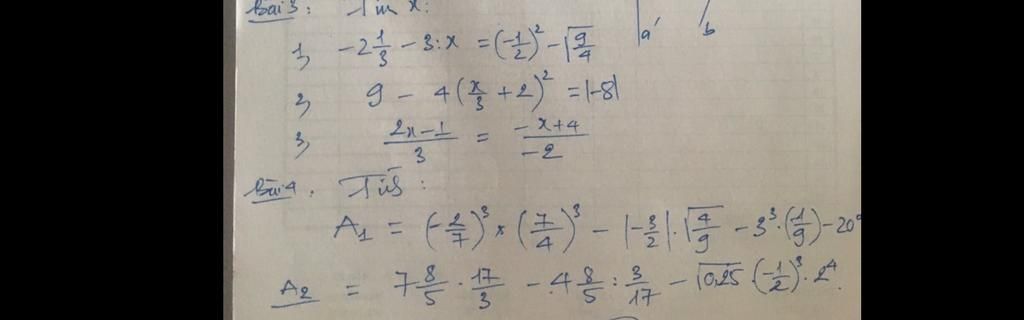 Bài 3: Tìm x:
a b
1, -2 1/3 - 3:x = (-1/2)² - √(9/4)
2, 9 - 4(x/3 + 2)² = |-8|
3, (2x-1)/3 = (-x+4)/(-2)
Bài 4. Tính:
A₁ = (-2/7)³ × (7/4)³ - |-3/2| · √(4/9) - 3³ · (1/9) - 20⁰
A₂ = 7 8/5 · 17/3 - 4 8/5 : 3/17 - √0,25 · (-1/2)³ · 2⁴.